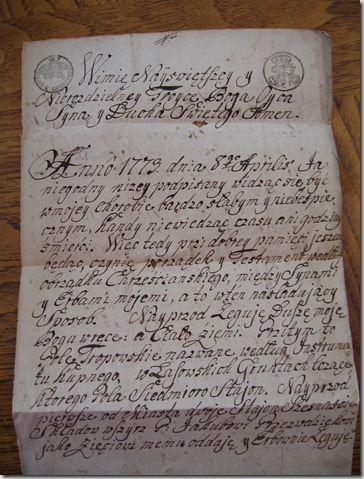 Wimię Nayświętszey y
Nierozdzielney Troyce Boga Oyca
Syna y Ducha Swiętego Amen.
Anno 1773. dnia 8go Aprilis, Ja
niegodny nizey podpisany widząc się byc
wmojey chorobie bardzo słabym y niebeśpie
cznym, kazdy niewiedząc czasu ani godziny
śmierci. Więc tedy przi dobrey pamięci jeszcze
będąc, czynię porządek y Testament według
obrządku Chrześcianskiego, między Synami
y Erbami mojemi, a to w ten nasladujący
Sposob. Nayprzod Leguję Duszę moję
Bogu wręce: a Ciało ziemi. Przitym to
Pole Tropowskie nazwane według Instrumę
tu kupnego, w Gruntach
ktorego Pola Siedmioro Stajon. Nayprzod
pierwsze od Miasta dwoje Stajon
Składow wszyrz P. Jakubowi
jako Zięciowi memu oddaję y Erbownie Leguję.